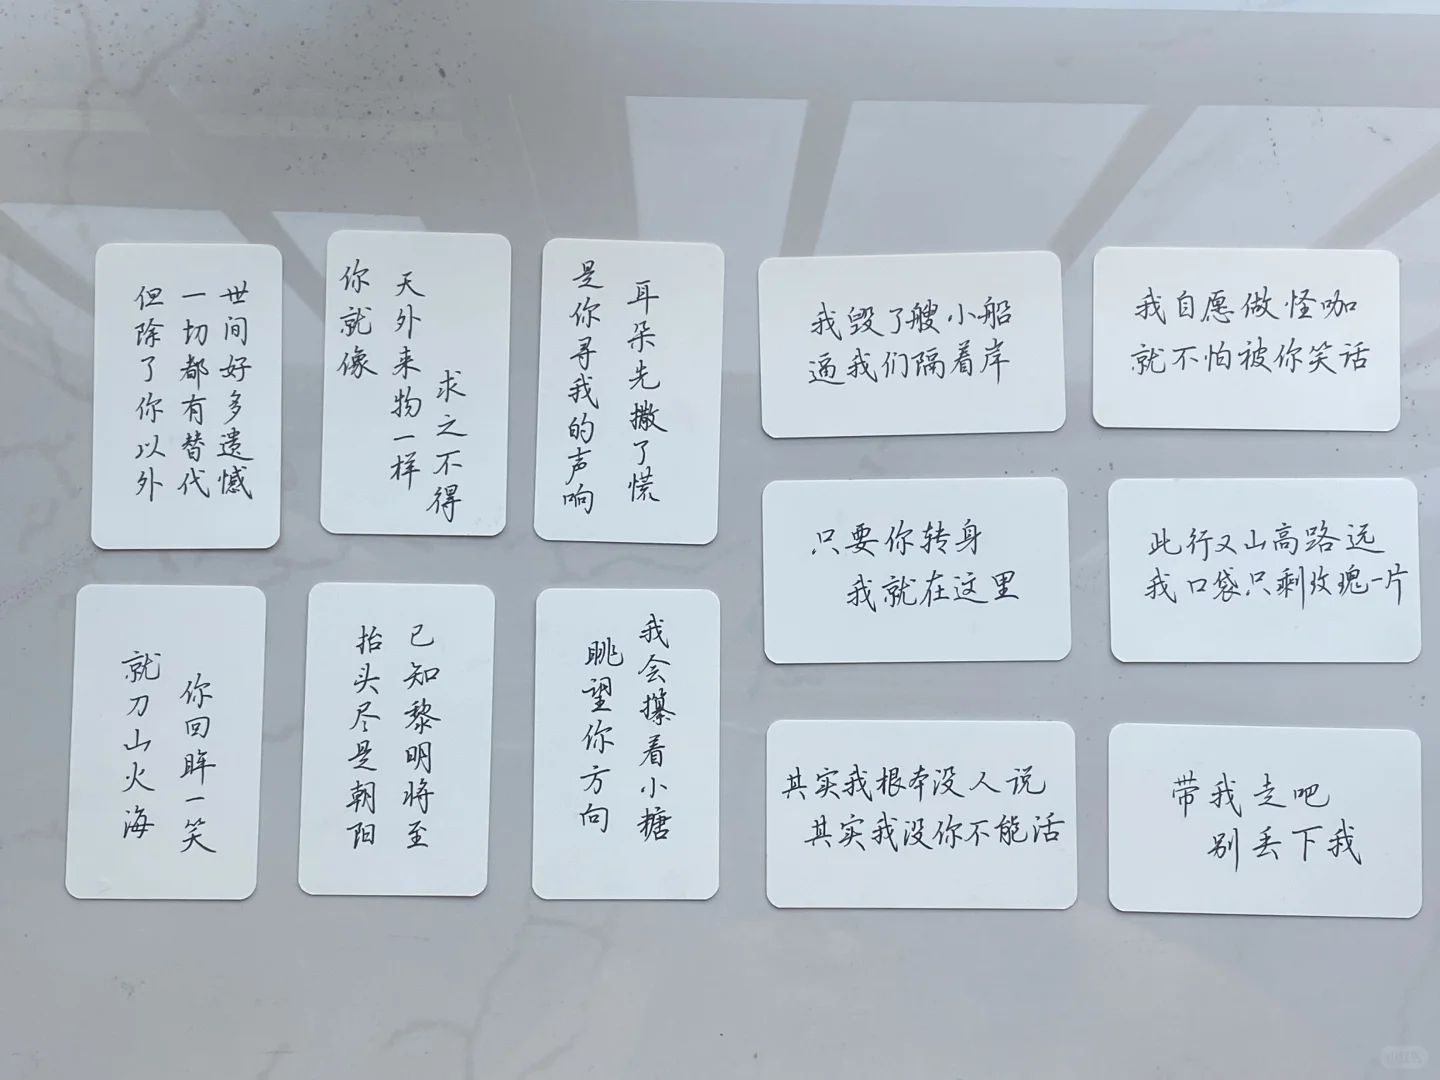 世间好多遗憾
一切都有替代
但除了你以外
你就像
天外来物一样
求之不得
耳朵先撒了慌
是你寻我的声响
我毁了艘小船
逼我们隔着岸
我自愿做怪咖
就不怕被你笑话
只要你转身
我就在这里
此行又山高路远
我口袋只剩玫瑰一片
你回眸一笑
就刀山火海
已知黎明将至
抬头尽是朝阳
我会攥着小糖
眺望你方向
其实我根本没人说
其实我没你不能活
带我走吧
别丢下我
小红书